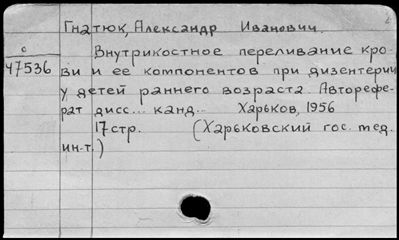 Гнатюк, Александр Иванович.
с
47536
Внутрикостное переливание кро-
ви и ее компонентов при дизентерии
у детей раннего возраста. Авторефе-
рат дисс... канд... Харьков, 1956
17 стр. (Харьковский гос. мед.
ин-т.)